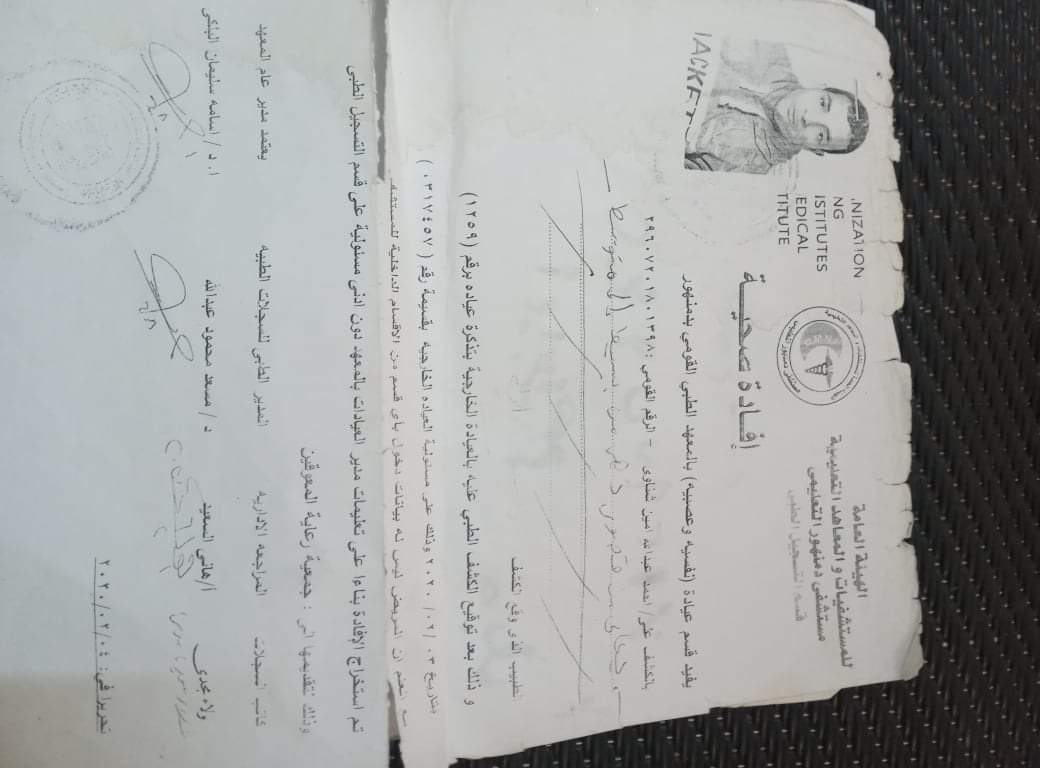 الهيئة العامة
للمستشفيات و المعاهد التعليمية
مستشفى دمنهور التعليمى
قسم التسجيل الطبى
NIZATION
NG
ISTITUTES
EDICAL
TITUTE
إفادة صحية
يفيد قسم عيادة (نفسيه وعصبيه) بالمعهد الطبي القومي بدمنهور
بالكشف على / احمد عبدالله امين شناوى - الرقم القومي
الطبيب الذى وقع الكشف
و ذلك بعد توقيع الكشف الطبي عليه بالعيادة الخارجية بتذكرة عياده برقم (١٢٥٩)
بتاريخ ٢٠٢٠/٠٢/٠٣ وذلك على مسئولية العياده الخارجيه بقسيمة رقم (٠٣١٧٤٥٧)
مع العلم ان المريض ليس له بيانات دخول باى قسم من الاقسام الداخلية للمستشفى
تم استخراج الإفادة بناءا على تعليمات مدير العيادات بالمعهد دون ادنى مسئولية على قسم التسجيل الطبى
وذلك لتقديمها الى : جمعية رعاية المعوقين
كاتب السجلات المراجعه الاداريه المدير الطبى للسجلات الطبيه يعتمد مدير عام المعهد
ولاء مجدى أ/هانى السعيد د/ مسعد محمود عبدالله ا.د/ اسامه سليمان
تحريرا في: ٢٠٢٠/٠٢/٠٤